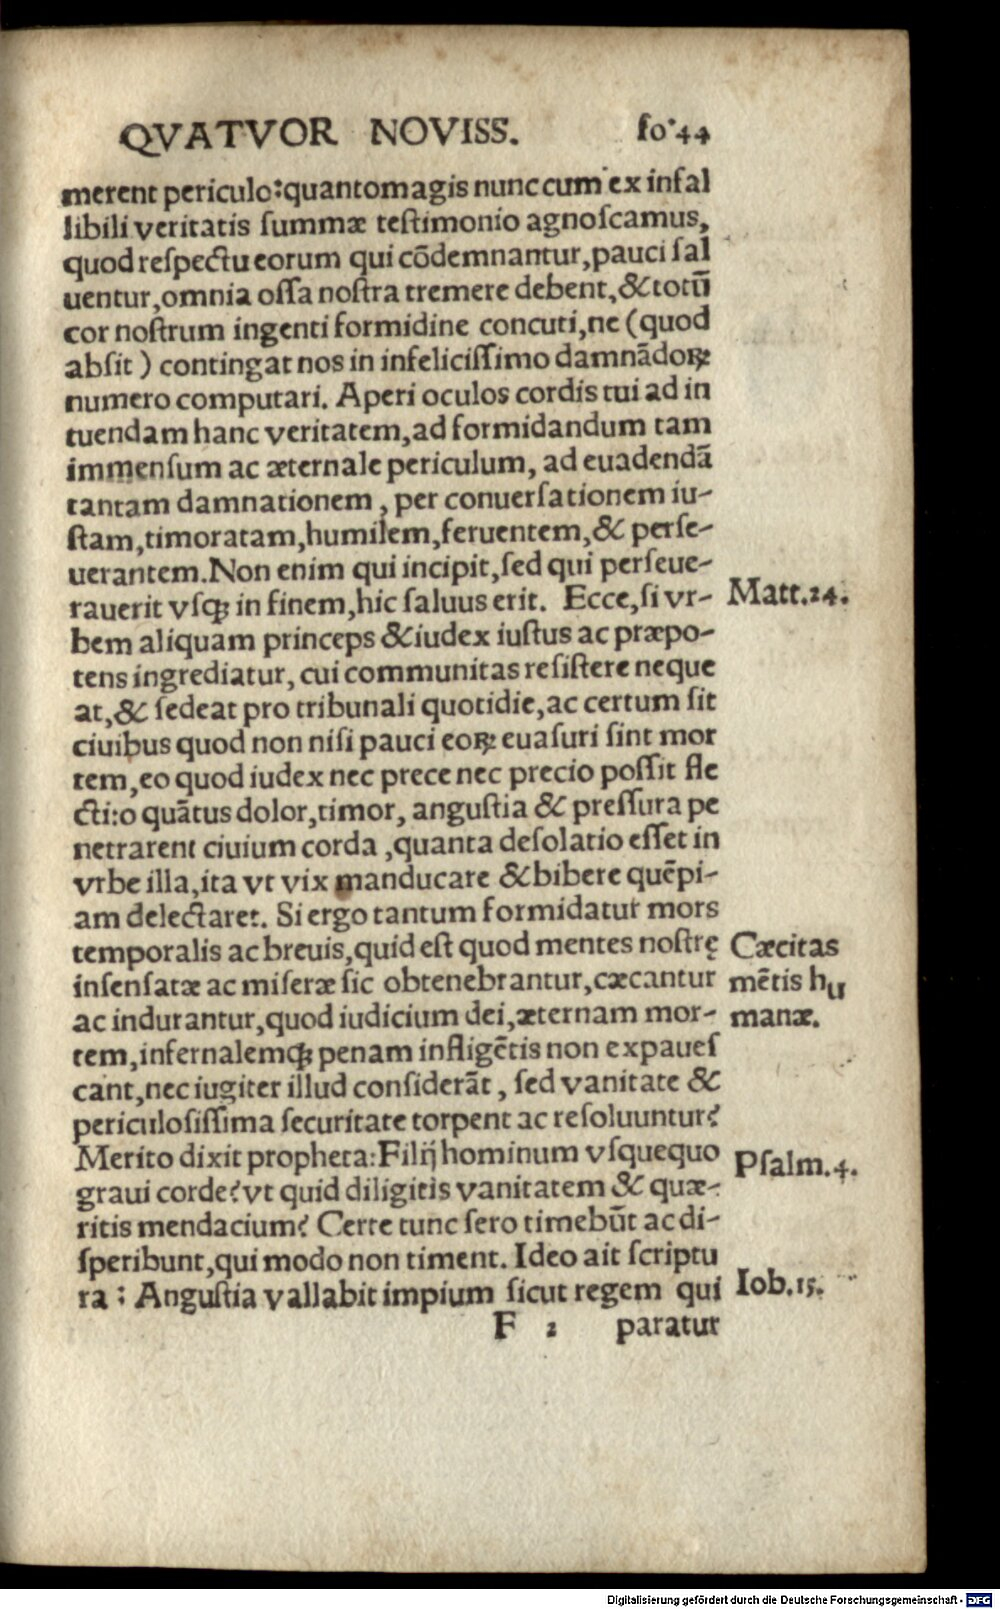 QVATVOR NOVISS. fo·44
merent periculo: quantomagis nunc cum ex infal
libili veritatis ſummæ teſtimonio agnoſcamus,
quod reſpectu eorum qui cõdemnantur, pauci ſal
uentur, omnia oſſa noſtra tremere debent, & totũ
cor noſtrum ingenti formidine concuti, ne (quod
abſit) contingat nos in infeliciſſimo damnãdoꝝ
numero computari. Aperi oculos cordis tui ad in
tuendam hanc veritatem, ad formidandum tam
immenſum ac æternale periculum, ad euadendã
tantam damnationem, per conuerſationem iu-
ſtam, timoratam, humilem, feruentem, & perſe-
uerantem. Non enim qui incipit, ſed qui perſeue-
rauerit vſqꝫ in finem, hic ſaluus erit. Ecce, ſi vr-
Matt.24.
bem aliquam princeps & iudex iuſtus ac præpo-
tens ingrediatur, cui communitas reſiſtere neque
at, & ſedeat pro tribunali quotidie, ac certum ſit
ciuibus quod non niſi pauci eoꝝ euaſuri ſint mor
tem, eo quod iudex nec prece nec precio poſſit fle
cti: o quãtus dolor, timor, anguſtia & preſſura pe
netrarent ciuium corda, quanta deſolatio eſſet in
vrbe illa, ita vt vix manducare & bibere quẽpi-
am delectaret. Si ergo tantum formidatur mors
temporalis ac breuis, quid eſt quod mentes noſtrę
Cæcitas
inſenſatæ ac miſeræ ſic obtenebrantur, cæcantur
mẽtis hu
ac indurantur, quod iudicium dei, æternam mor-
manæ.
tem, infernalemqꝫ penam infligẽtis non expaueſ
cant, nec iugiter illud conſiderãt, ſed vanitate &
periculoſiſſima ſecuritate torpent ac reſoluuntur?
Merito dixit propheta: Filij hominum vſquequo
Pſalm.4.
graui corde? vt quid diligitis vanitatem & quæ-
ritis mendacium? Certe tunc ſero timebũt ac di-
ſperibunt, qui modo non timent. Ideo ait ſcriptu
ra: Anguſtia vallabit impium ſicut regem qui
Iob.15.
F 2 paratur
Digitalisierung gefördert durch die Deutsche Forschungsgemeinschaft - DFG